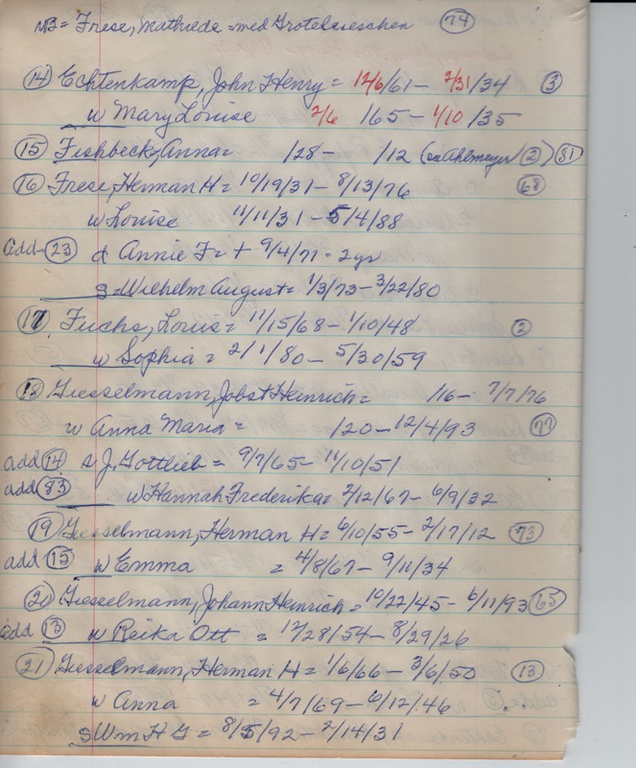 NB= Frese, Mathieda = med Grotelueschen (74)
(14) Echtenkamp, John Henry = 12/6/61 - 2/31/34 (3)
w Mary Louise 2/6 /65 - 1/10/35
(15) Fishbeck, Anna = /28 - /12 (on Ahlmeyer (2)) (81)
(16) Frese, Herman H = 10/19/31 - 8/13/76 (68)
w Louise 11/11/31 - 5/4/88
add (23) d Annie F = + 9/4/71 - 2 yr
s = Wilhelm August = 1/3/73 - 3/22/80
(17) Fuchs, Louis = 11/15/68 - 1/10/48 (2)
w Sophia = 2/1/80 - 5/30/59
(18) Giesselmann, Jobst Heinrich = /16 - 7/7/76
w Anna Maria = /20 - 12/4/93 (77)
add (14) s J. Gottlieb = 9/7/65 - 11/10/51
add (83) w Hannah Frederika = 2/12/67 - 6/9/32
(19) Giesselmann, Herman H = 6/10/55 - 2/17/12 (73)
add (15) w Emma = 4/8/67 - 9/11/34
(20) Giesselmann, Johann Heinrich = 10/22/45 - 6/11/93 (65)
add (13) w Reika Ott = 12/28/54 - 8/29/26
(21) Giesselmann, Herman H = 1/6/66 - 3/6/50 (13)
w Anna = 4/7/69 - 6/12/46
s Wm H G = 8/5/92 - 2/14/31